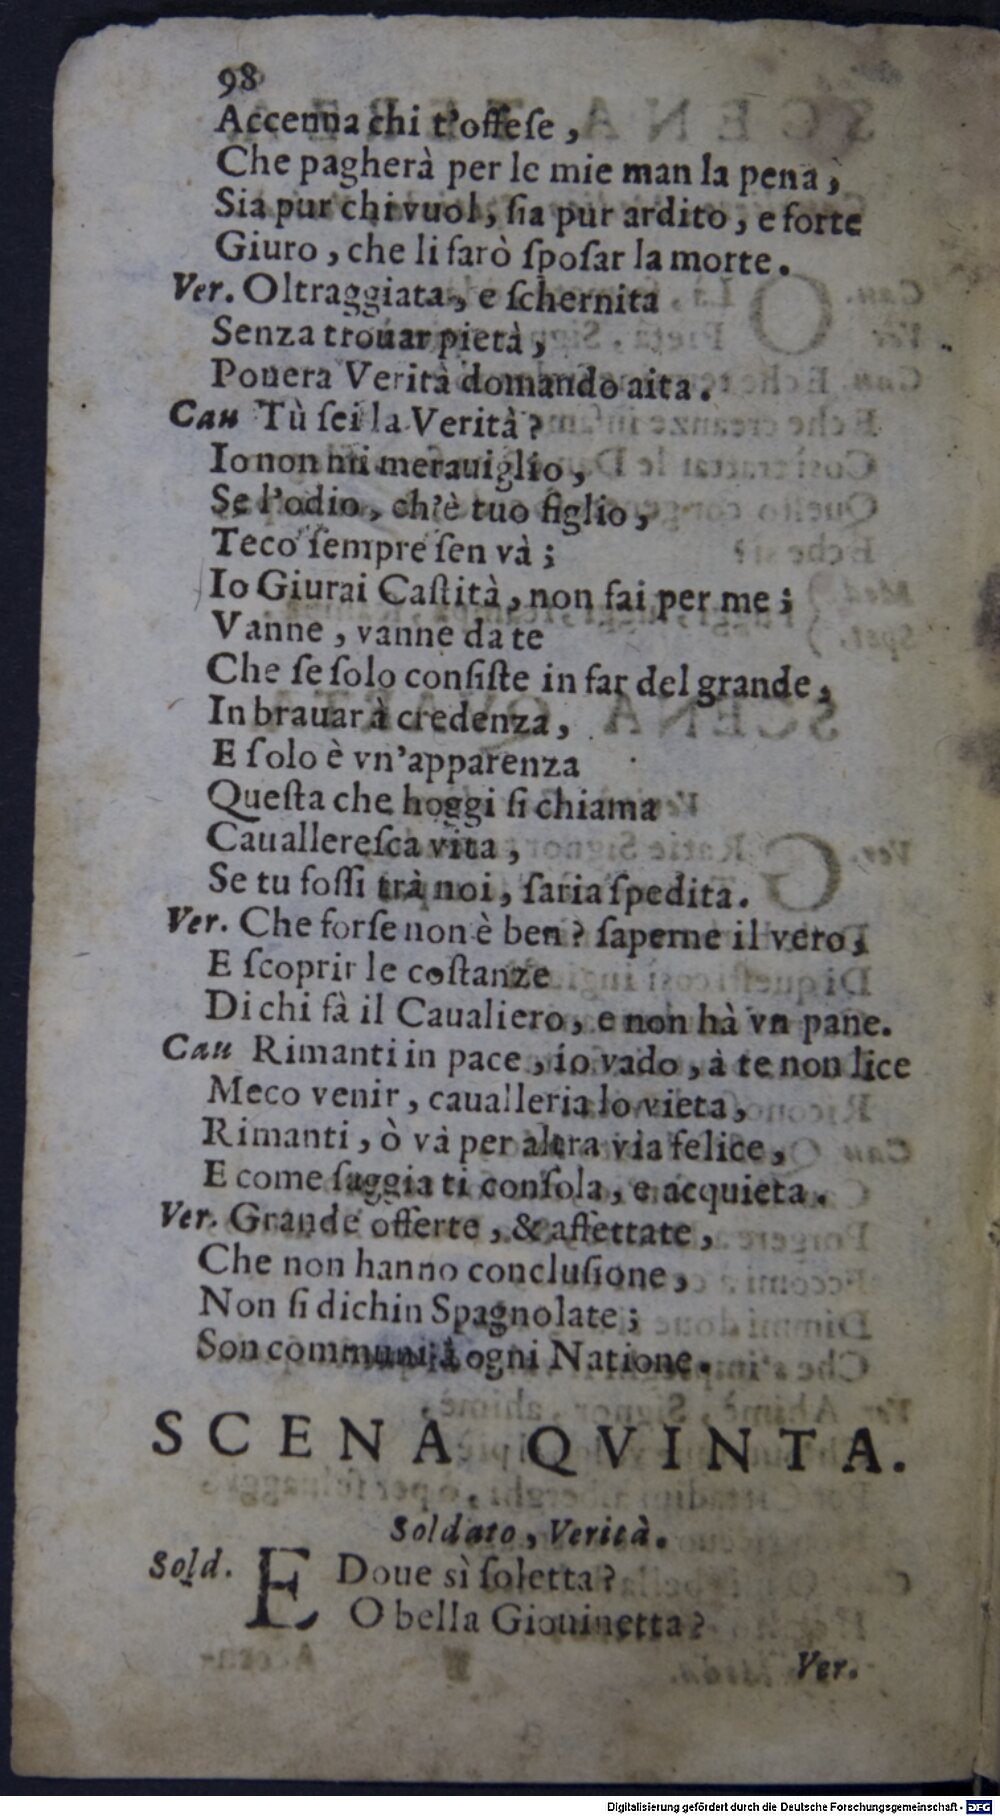 98
Accenna chi t'offeſe ,
Che pagherà per le mie man la pena ;
Sia pur chi vuol , ſia pur ardito , e forte
Giuro , che li farò ſpoſar la morte .
Ver. Oltraggiata , e ſchernita
Senza trouar pietà ,
Pouera Verità domando aita .
Cau Tù ſei la Verità ?
Io non mi merauiglio ,
Se l'odio , ch'è tuo figlio ,
Teco ſempre ſen và ;
Io Giurai Caſtità , non fai per me ;
Vanne , vanne da te
Che ſe ſolo conſiſte in far del grande ,
In brauar à credenza ,
E ſolo è vn'apparenza
Queſta che hoggi ſi chiama
Cauallereſca vita ,
Se tu foſſi trà noi , ſaria ſpedita .
Ver. Che forſe non è ben ? ſaperne il vero ,
E ſcoprir le coſtanze
Di chi fà il Caualiero , e non hà vn pane .
Cau Rimanti in pace , io vado , à te non lice
Meco venir , caualleria lo vieta ,
Rimanti , ò và per altra via felice ,
E come ſaggia ti conſola , e acquieta .
Ver. Grande offerte , & affettate ,
Che non hanno concluſione ,
Non ſi dichin Spagnolate ;
Son communi à ogni Natione .
SCENA QVINTA.
Soldato , Verità .
Sold. E Doue sì ſoletta ?
O bella Giouinetta ?
Ver.
Digitalisierung gefördert durch die Deutsche Forschungsgemeinschaft - DFG